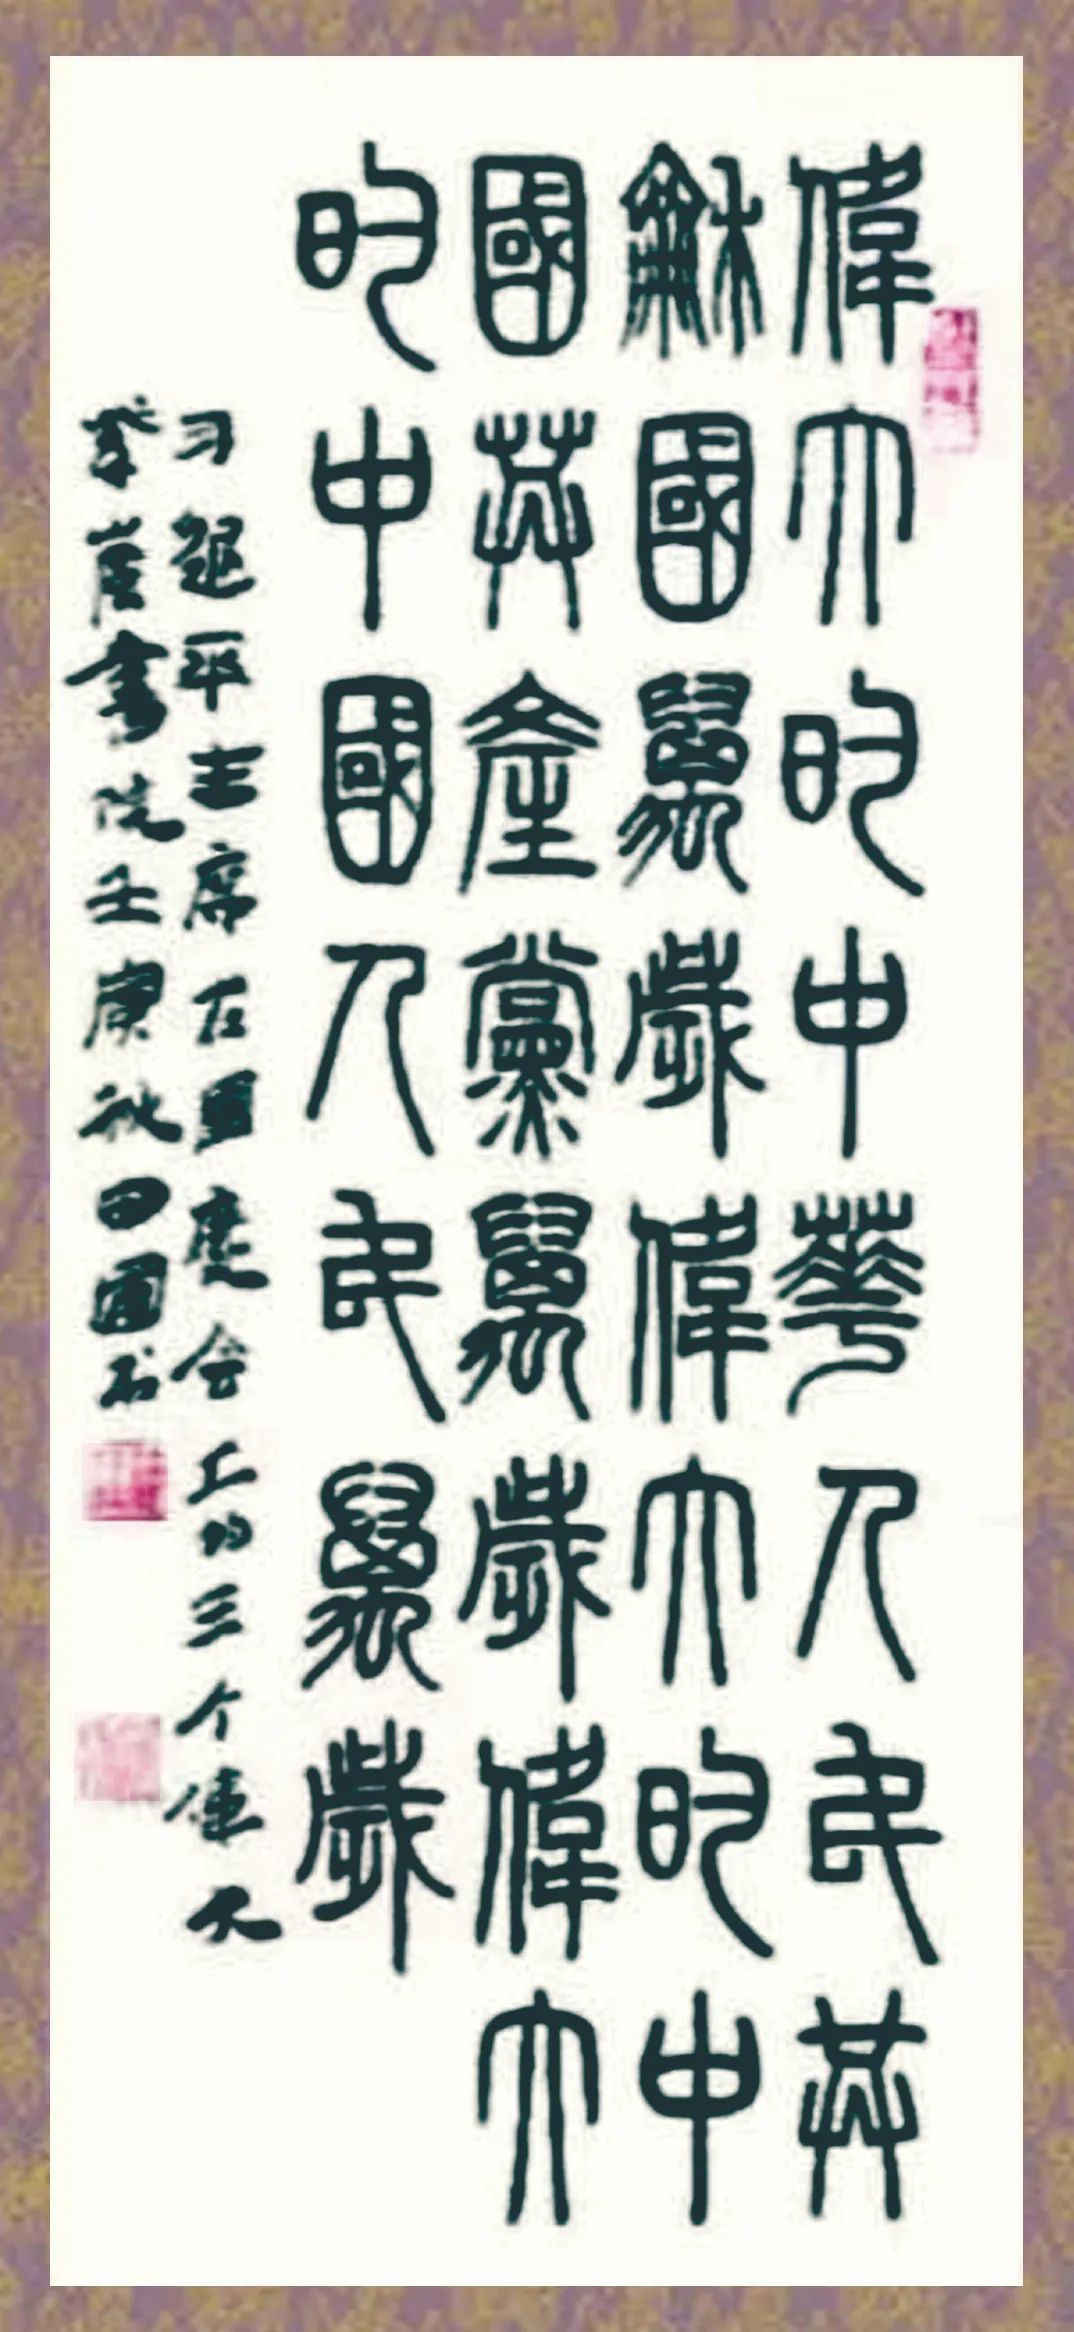 偉大的中華人民共
龢國萬歲偉大的中
國共產黨萬歲偉大
的中國人民萬歲
习近平主席在國庆会上的三个偉大
書院 秋